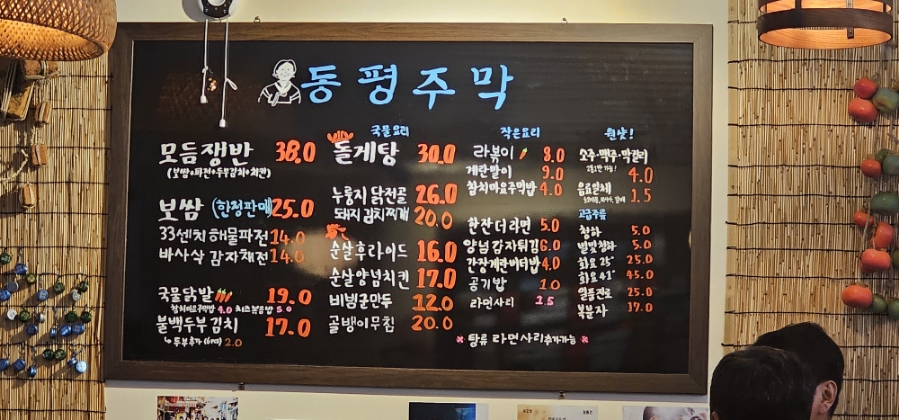 동평주막
모듬쟁반 38.0
(보쌈+파전+두부김치+치킨)
보쌈 (한정판매) 25.0
33센치 해물파전 14.0
바사삭 감자채전 14.0
국물닭발 19.0
참치마요주먹밥 4.0 치즈볶음밥 5.0
불백두부김치 17.0
↳ 두부추가 2.0
국물요리
돌게탕 30.0
누룽지 닭전골 26.0
돼지김치찌개 20.0
순살후라이드 16.0
순살양념치킨 17.0
비빔군만두 12.0
골뱅이무침 20.0
작은요리
라볶이 8.0
계란말이 9.0
참치마요주먹밥 4.0
한잔 더 라면 5.0
양념감자튀김 6.0
간장계란버터밥 4.0
공기밥 1.0
라면사리 1.5
* 탕류 라면사리 추가가능 *
원샷!
소주·맥주·막걸리
4.0
음료일체
1.5
고급주류
청하 5.0
별빛청하 5.0
화요 25° 25.0
화요 41° 45.0
일품진로 25.0
복분자 17.0